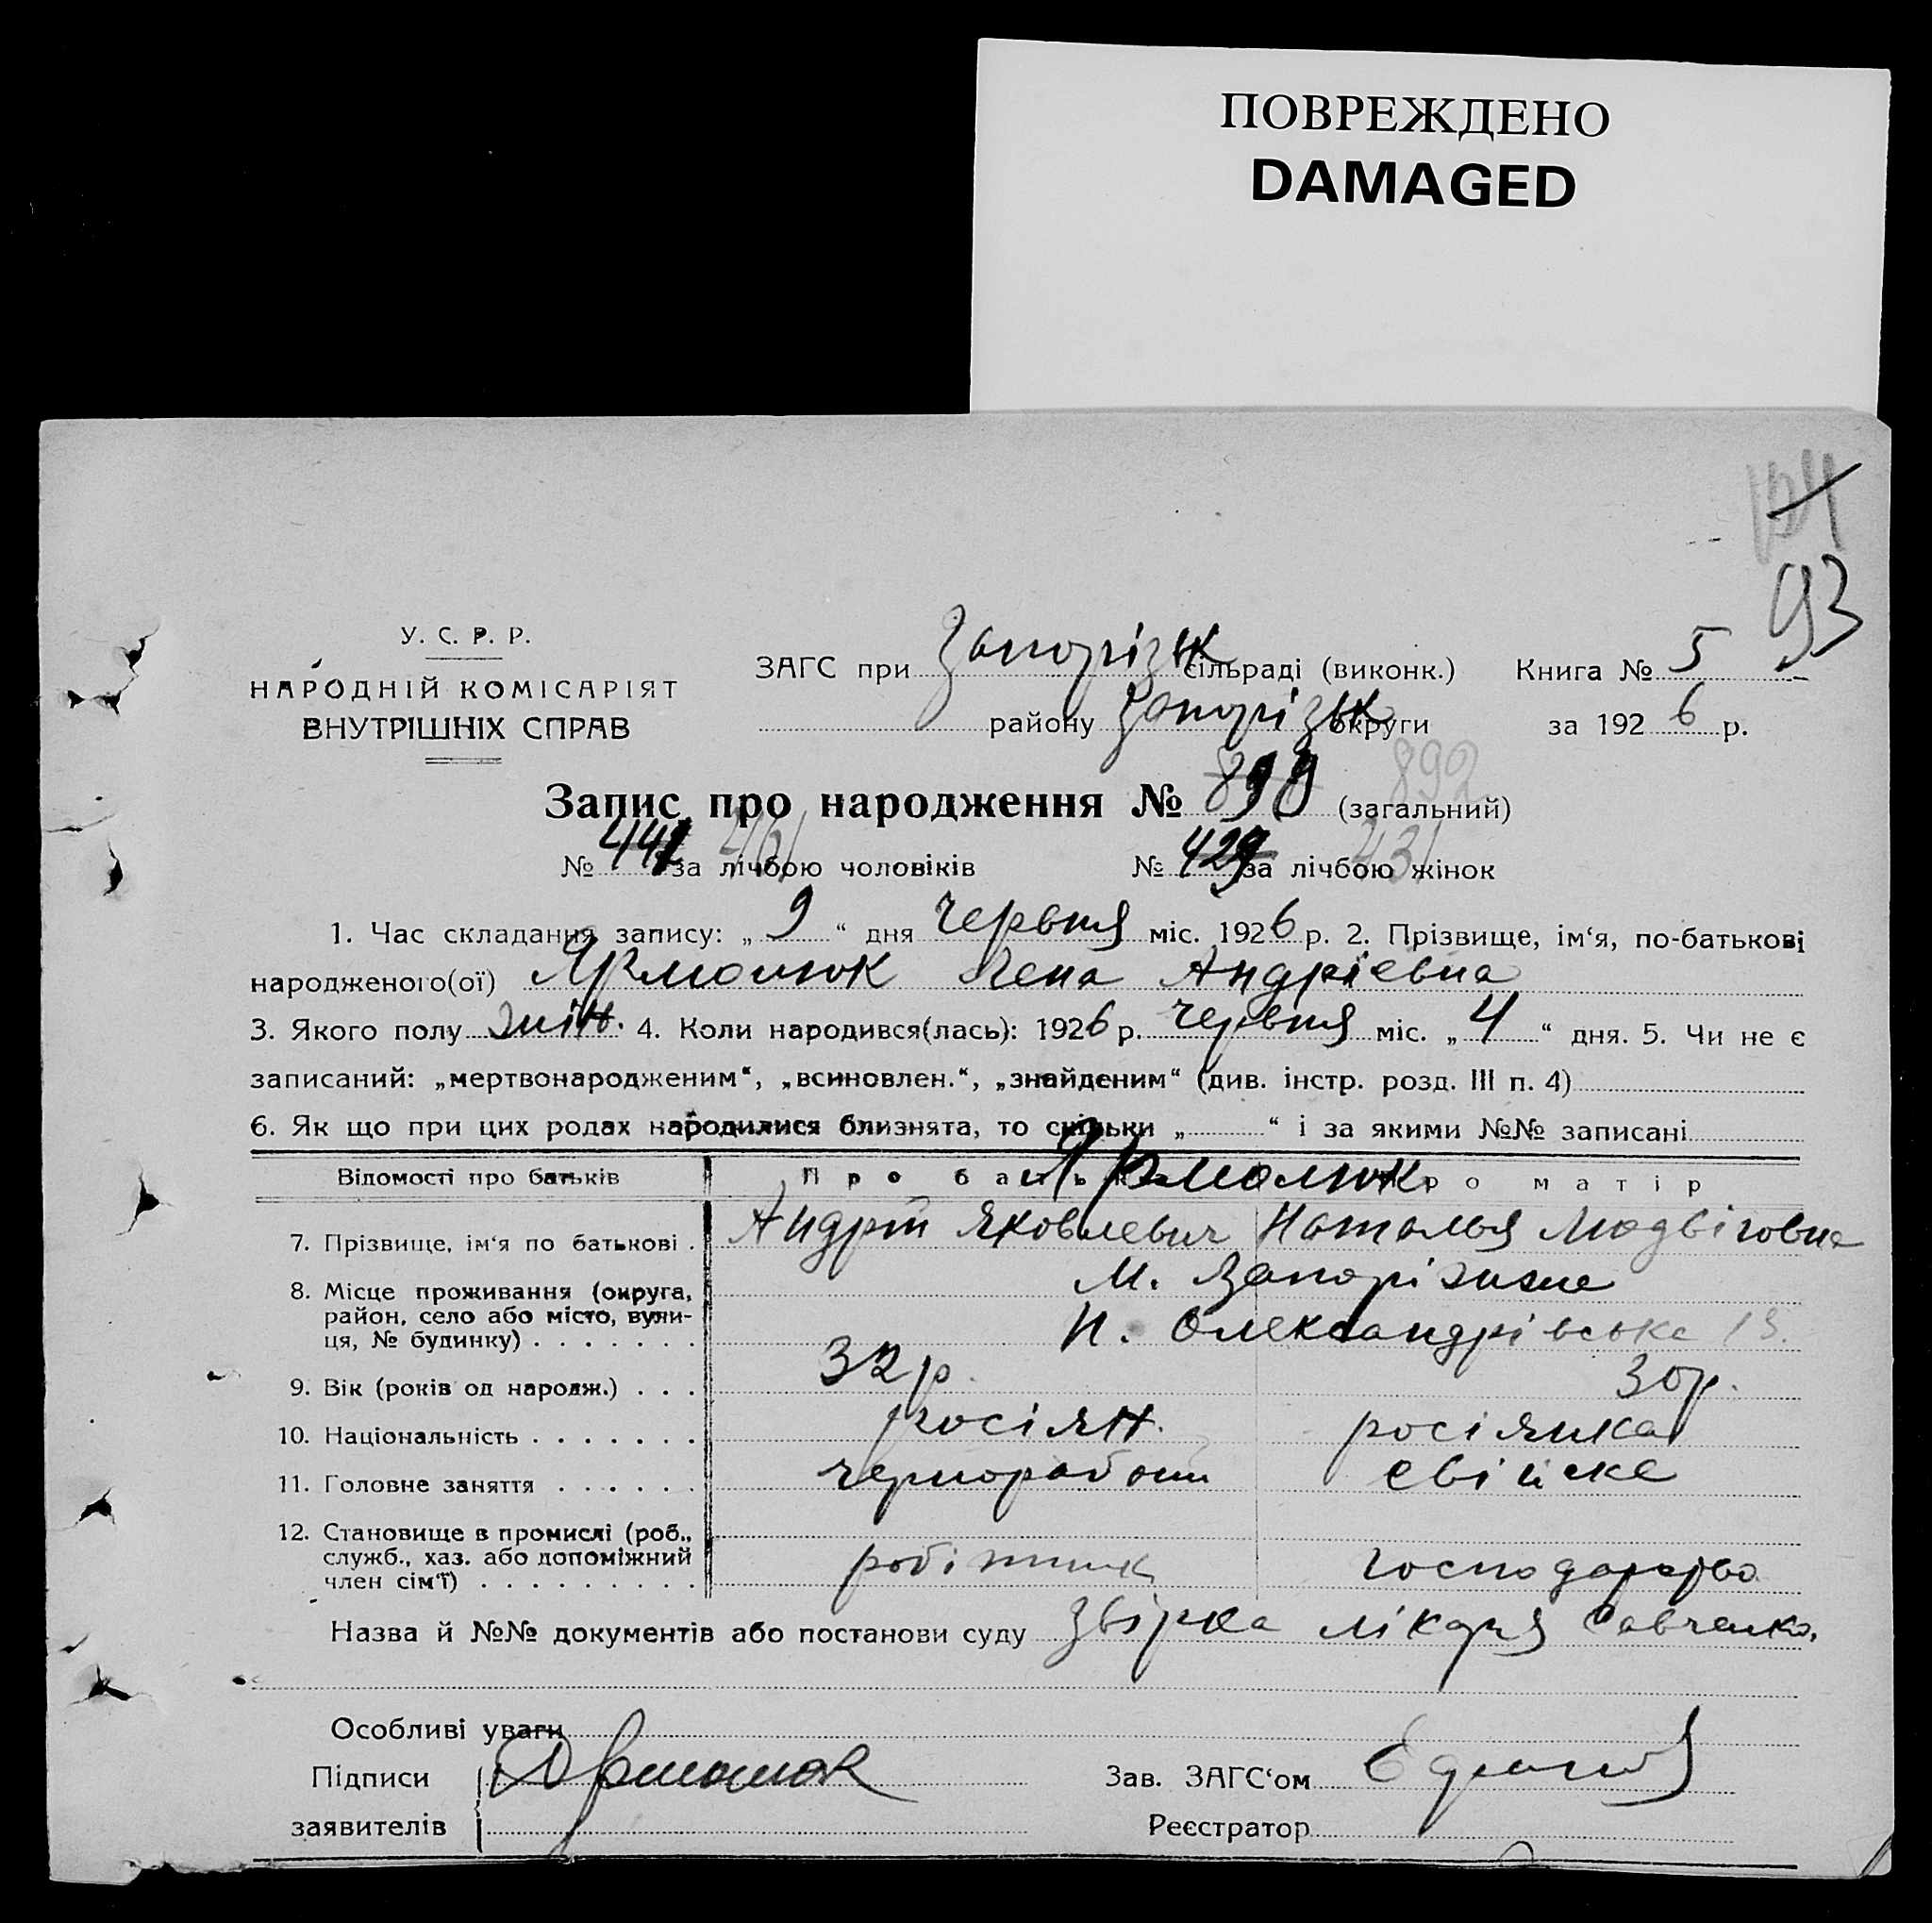 ПОВРЕЖДЕНО
DAMAGED
93
У. С. Р. Р.
НАРОДНІЙ КОМІСАРІЯТ
ВНУТРІШНІХ СПРАВ
ЗАГС при Запорізьк сільраді (виконк.) Книга № 5
району Запорізьк округи за 1926 р.
Запис про народження № (загальний) 892
№ за лічбою чоловіків № 429 за лічбою жінок 431
1. Час складання запису: „ 9 “ дня Червня міс. 1926 р. 2. Прізвище, ім‘я, по-батькові
народженого(ої) Ярмолюк Лена Андріевна
3. Якого полу жін. 4. Коли народився(лась): 1926 р. Червня міс. „ 4 “ дня. 5. Чи не є
записаний: „мертвонародженим“, „всиновлен.“, „знайденим“ (див. інстр. розд. III п. 4)
6. Як що при цих родах народилися близнята, то скільки „ “ і за якими №№ записані
Відомості про батьків Про батька Ярмолюк Про матір
7. Прізвище, ім‘я по батькові . Андрій Яковлевич Наталья Людвіговна
8. Місце проживання (округа, м. Запоріжже
район, село або місто, вули-
ця, № будинку) . . . . . . . Олександрівська 13.
9. Вік (років од народж.) . . . 32 р. 30 р.
10. Національність . . . . . . . росіян. росіянка
11. Головне заняття . . . . . . чорноробоч
12. Становище в промислі (роб.,
служб., хаз. або допоміжний
член сім‘ї) . . . . . . . . . робітник господарство
Назва й №№ документів або постанови суду Звірка лікаря Савченко,
Особливі уваги
Підписи Ярмолюк Зав. ЗАГС‘ом
заявителів Реєстратор